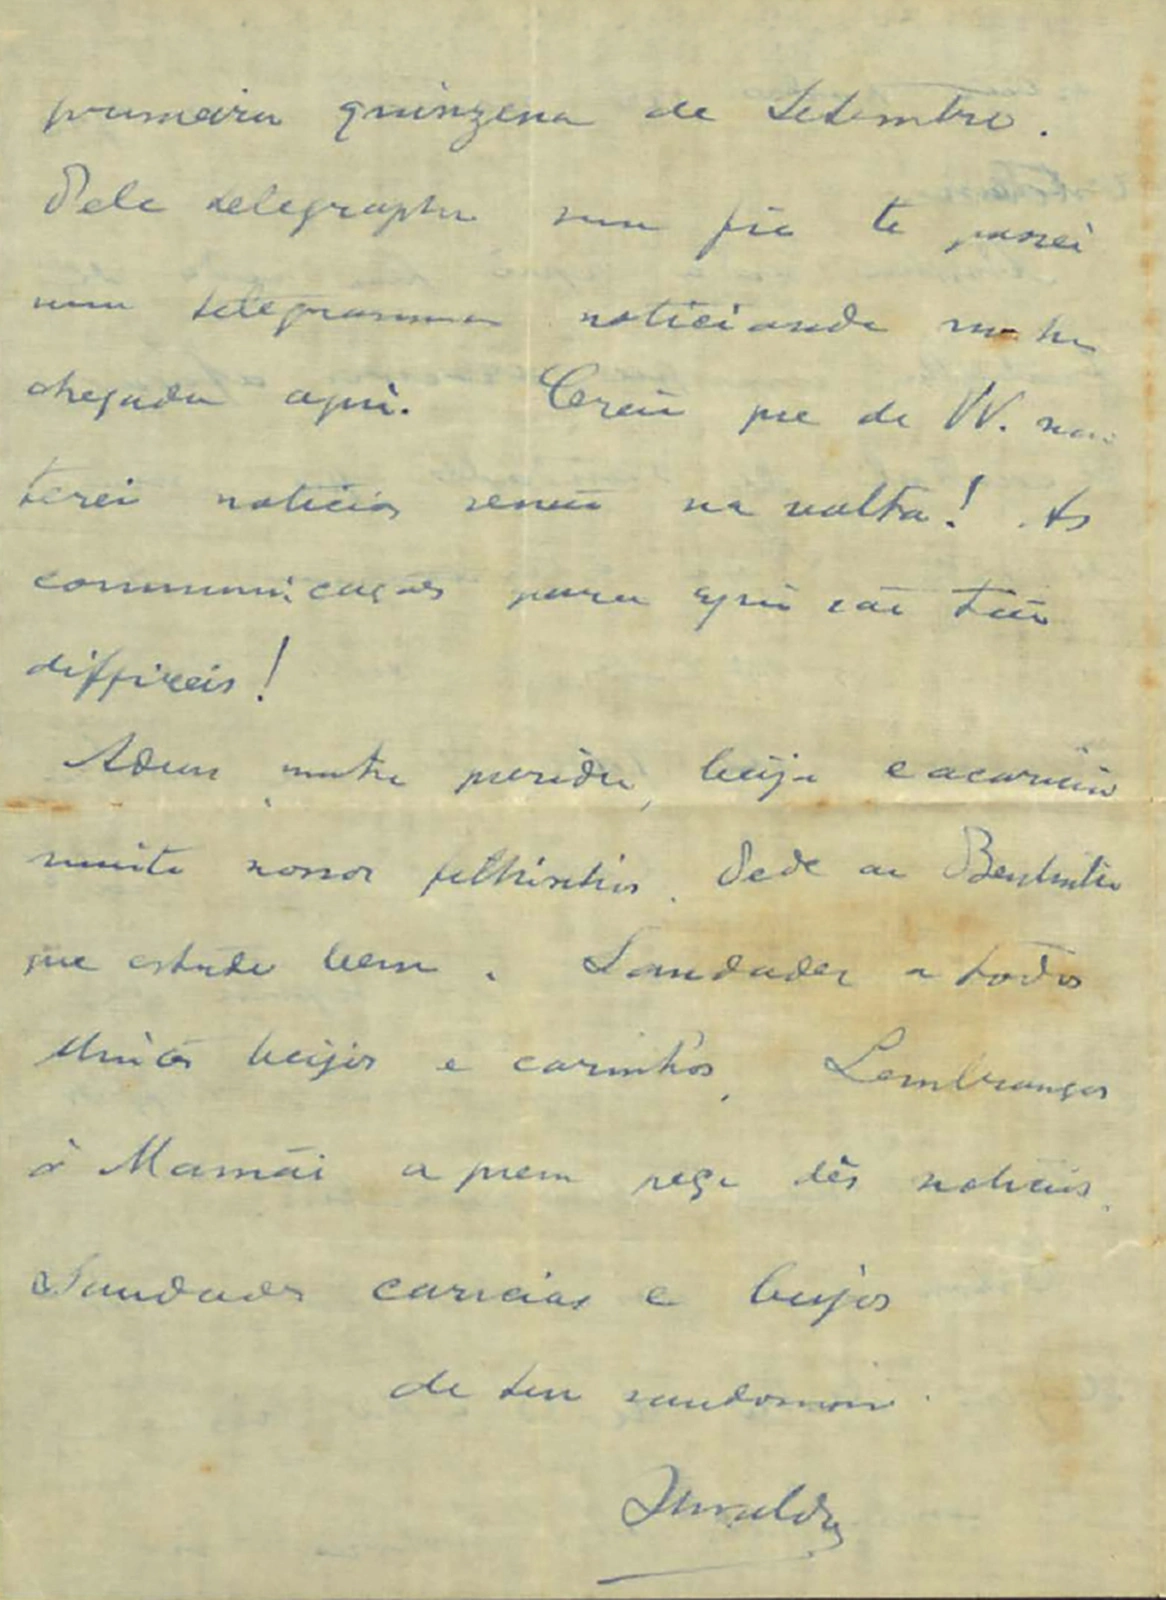 primeira quinzena de Setembro.
Pelo telegrapho sem fio te passei
um telegramma noticiando minha
chegada aqui. Creio que de VV. não
terei noticias senão na volta! As
communicações para aqui são tão
difficeis!
Adeus, minha querida, beija e acaricia
muito nossos filhinhos. Pede ao Bentinho
que estude bem. Saudades a todos
Muitos beijos e carinhos. Lembranças
á Mamãi a quem peço dês noticias.
Saudades caricias e beijos
de teu saudosissimo